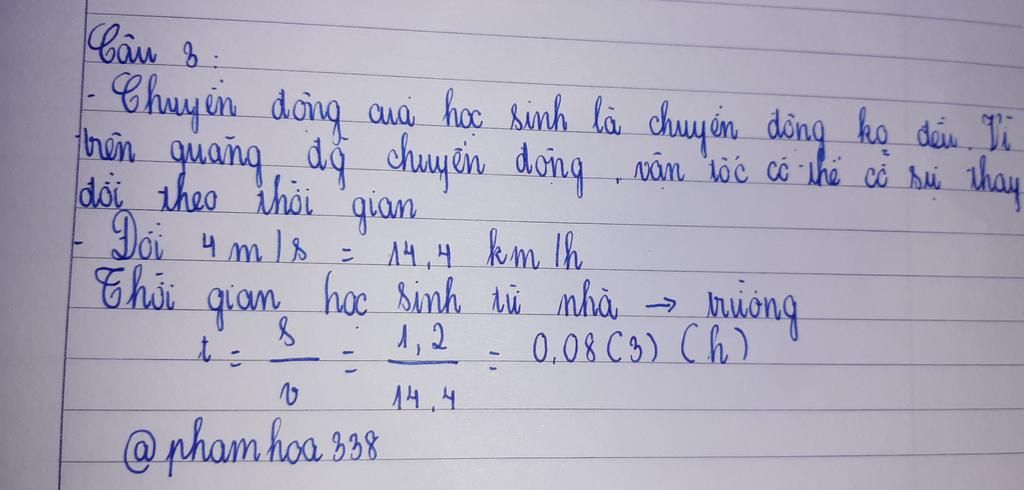 Câu 8:
- Chuyển động của học sinh là chuyển động ko đều. Vì
trên quãng đg chuyển động, vận tốc có thể có sự thay
đổi theo thời gian
- Đổi 4m/s = 14,4 km/h
Thời gian học sinh từ nhà → trường
t = s/v = 1,2/14,4 = 0,08(3) (h)
@phamhoa338